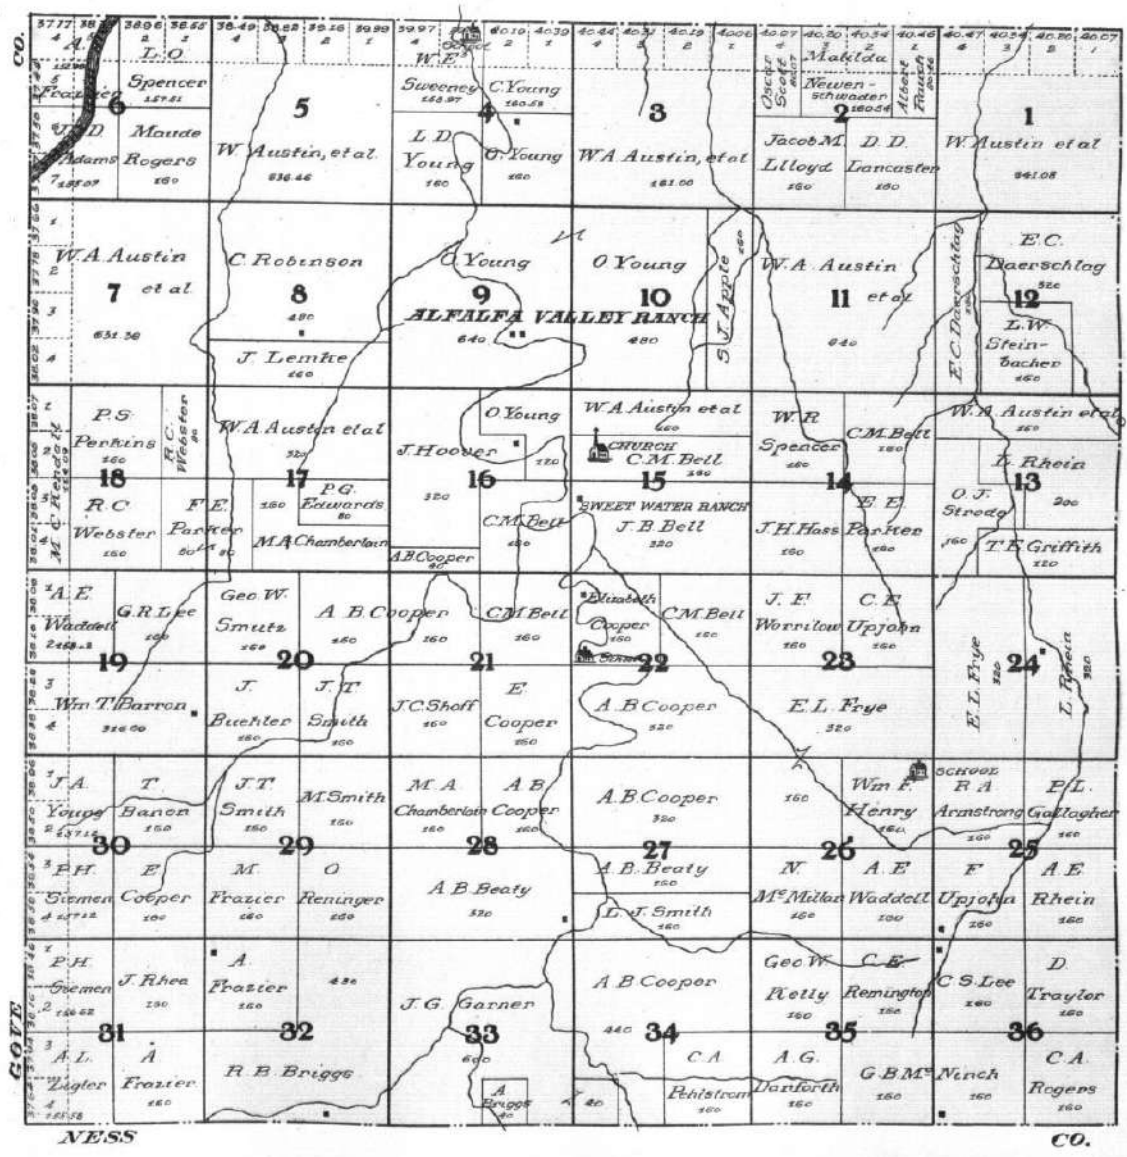 CO.
37.77 38.96 38.55 38.49 38.82 39.16 39.99 39.97 40.19 40.39 40.44 40.31 40.19 40.06 40.07 40.20 40.34 40.46 40.47 40.34 40.20 40.07
4 2 1 4 3 2 1 4 2 1 4 3 2 1 4 3 2 1 4 3 2 1
A.
Frazier
L. O.
Spencer
157.51
6
J. D.
Adams
155.07
Maude
Rogers
160
5
W. Austin, et al.
636.46
W. E.
Sweeney
158.97
C. Young
160.58
4
L. D.
Young
160
O. Young
160
3
W A Austin, et al
161.00
Oscar
Scott
80.07
Matilda
Newen-
schwader
160.54
Albert
Trauch
80.46
2
Jacob M.
Llloyd
160
D. D.
Lancaster
160
1
W. Austin et al
641.08
W. A. Austin
7 et al
631.36
C. Robinson
8
480
J. Lemke
160
O. Young
9
640
O. Young
10
ALFALFA VALLEY RANCH
480
S. J. Apple
160
W. A. Austin
11 et al
640
E. C. Daerschlag
160
E. C.
Daerschlag
320
12
L. W.
Stein-
bacher
160
M C Hendall
P. S.
Perkins
160
R. C.
Webster
80
18
R. C.
Webster
160
F. E.
Parker
80 80
W. A. Austin et al
320
17
160
P. G.
Edwards
80
M A Chamberlain
J. Hoover
320
O. Young
120
16
C. M. Bell
A. B. Cooper
40
W. A. Austin et al
160
CHURCH
C. M. Bell
160
15
SWEET WATER RANCH
J. B. Bell
320
W. R.
Spencer
160
C. M. Bell
160
14
J. H. Hass
160
E. E.
Parker
160
W. A. Austin et al
160
L. Rhein
200
13
O. J.
Strode
160
T. E. Griffith
120
A. E.
Waddell
G. R. Lee
160
19
Wm T. Barron
316.00
Geo. W.
Smutz
160
A. B. Cooper
160 160
20
J.
Buehler
160
J. T.
Smith
160
C. M. Bell
160
21
J. C. Shoff
160
E.
Cooper
160
Elizabeth
Cooper
160
C. M. Bell
160
22
A. B Cooper
320
J. F.
Worrilow
160
C. E.
Upjohn
160
23
E. L. Frye
320
E. L. Frye
320
24
L. Rhein
320
J. A.
Young
157.12
T.
Banon
160
30
P. H.
Siemen
157.12
E
Cooper
160
J. T.
Smith
160
M. Smith
160
29
M.
Frazier
160
O
Reninger
160
M. A.
Chamberlain
160
A. B.
Cooper
160
28
A. B Beaty
320
A. B. Cooper
320
27
A. B. Beaty
160
L. J. Smith
160
160
Wm. F.
Henry
160
26
N.
Mc Millan
160
A. E
Waddell
160
SCHOOL
R A.
Armstrong
160
P. L.
Gallagher
160
25
F
Upjohn
160
A. E
Rhein
160
P. H.
Siemen
156.62
J. Rhea
160
31
A. L.
Zigler
155.58
A
Frazier
160
A.
Frazier
160
480
32
R. B. Briggs
J. G. Garner
33
600
A.
Briggs
40
A. B. Cooper
440
34
40
C. A.
Pehlstrom
160
Geo. W.
Kelly
160
C. E.
Remington
160
35
A. G.
Danforth
160
G. B. Mc Ninch
160
C. S. Lee
160
D.
Traylor
160
36
C. A.
Rogers
160
GOVE
NESS
CO.